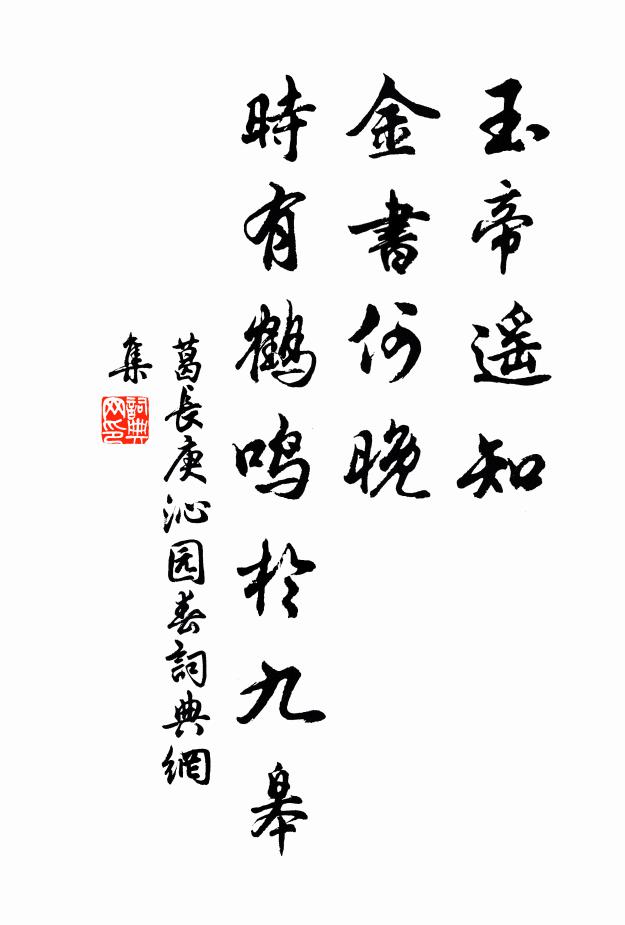 玉帝遥知
金書何晚
時有鶴鸣於九皋
葛長庚沁园春詞典網
集
詞典
网印